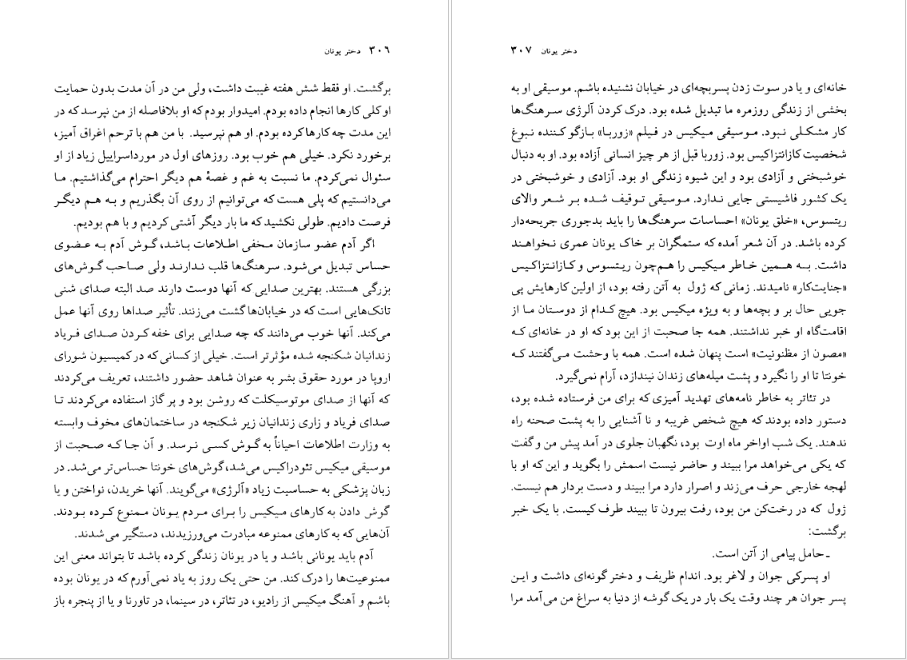 ۳۰۶ دختر یونان
برگشت. او فقط شش هفته غیبت داشت، ولی من در آن مدت بدون حمایت
او کلی کارها انجام داده بودم. امیدوار بودم که او بلافاصله از من نپرسد که در
این مدت چه کارها کرده بودم. او هم نپرسید. با من هم با ترحم اغراق آمیز،
برخورد نکرد. خیلی هم خوب بود. روزهای اول در مورد اسراییل زیاد از او
سئوال نمی‌کردم. ما نسبت به غم و غصهٔ هم دیگر احترام می‌گذاشتیم. ما
می‌دانستیم که پلی هست که می‌توانیم از روی آن بگذریم و به هم دیگر
فرصت دادیم. طولی نکشید که ما بار دیگر آشتی کردیم و با هم بودیم.
اگر آدم عضو سازمان مخفی اطلاعات باشد، گوش آدم به عضوی
حساس تبدیل می‌شود. سرهنگ‌ها قلب ندارند ولی صاحب گوش‌های
بزرگی هستند. بهترین صدایی که آنها دوست دارند صد البته صدای شنی
تانک‌هایی است که در خیابان‌ها گشت می‌زنند. تأثیر صداها روی آنها عمل
می‌کند. آنها خوب می‌دانند که چه صدایی برای خفه کردن صدای فریاد
زندانیان شکنجه شده مؤثرتر است. خیلی از کسانی که در کمیسیون شورای
اروپا در مورد حقوق بشر به عنوان شاهد حضور داشتند، تعریف می‌کردند
که آنها از صدای موتوسیکلت که روشن بود و پر گاز استفاده می‌کردند تا
صدای فریاد و زاری زندانیان زیر شکنجه در ساختمان‌های مخوف وابسته
به وزارت اطلاعات احیاناً به گوش کسی نرسد. و آن جا که صحبت از
موسیقی میکیس تئودراکیس می‌شد، گوش‌های خونتا حساس‌تر می‌شد. در
زبان پزشکی به حساسیت زیاد «آلرژی» می‌گویند. آنها خریدن، نواختن و یا
گوش دادن به کارهای میکیس را برای مردم یونان ممنوع کرده بودند.
آن‌هایی که به کارهای ممنوعه مبادرت می‌ورزیدند، دستگیر می‌شدند.
آدم باید یونانی باشد و یا در یونان زندگی کرده باشد تا بتواند معنی این
ممنوعیت‌ها را درک کند. من حتی یک روز به یاد نمی‌آورم که در یونان بوده
باشم و آهنگ میکیس از رادیو، در تئاتر، در سینما، در تاورنا و یا از پنجره باز
دختر یونان ۳۰۷
خانه‌ای و یا در سوت زدن پسربچه‌ای در خیابان نشنیده باشم. موسیقی او به
بخشی از زندگی روزمره ما تبدیل شده بود. درک کردن آلرژی سرهنگ‌ها
کار مشکلی نبود. موسیقی میکیس در فیلم «زوربا» بازگو کننده نبوغ
شخصیت کازانتزاکیس بود. زوربا قبل از هر چیز انسانی آزاده بود. او به دنبال
خوشبختی و آزادی بود و این شیوه زندگی او بود. آزادی و خوشبختی در
یک کشور فاشیستی جایی ندارد. موسیقی توقیف شده بر شعر والای
ریتسوس، «خلق یونان» احساسات سرهنگ‌ها را باید بدجوری جریحه‌دار
کرده باشد. در آن شعر آمده که ستمگران بر خاک یونان عمری نخواهند
داشت. به همین خاطر میکیس را هم‌چون ریتسوس و کازانتزاکیس
«جنایت‌کار» نامیدند. زمانی که ژول به آتن رفته بود، از اولین کارهایش پی
جویی حال بر و بچه‌ها و به ویژه میکیس بود. هیچ کدام از دوستان ما از
اقامت‌گاه او خبر نداشتند. همه جا صحبت از این بود که او در خانه‌ای که
«مصون از مظنونیت» است پنهان شده است. همه با وحشت می‌گفتند که
خونتا تا او را نگیرد و پشت میله‌های زندان نیندازد، آرام نمی‌گیرد.
در تئاتر به خاطر نامه‌های تهدید آمیزی که برای من فرستاده شده بود،
دستور داده بودند که هیچ شخص غریبه و نا آشنایی را به پشت صحنه راه
ندهند. یک شب اواخر ماه اوت بود، نگهبان جلوی در آمد پیش من و گفت
که یکی می‌خواهد مرا ببیند و حاضر نیست اسمش را بگوید و این که او با
لهجه خارجی حرف می‌زند و اصرار دارد مرا ببیند و دست بردار هم نیست.
ژول که در رخت‌کن من بود، رفت بیرون تا ببیند طرف کیست. با یک خبر
برگشت:
ـ حامل پیامی از آتن است.
او پسرکی جوان و لاغر بود. اندام ظریف و دختر گونه‌ای داشت و این
پسر جوان هر چند وقت یک بار در یک گوشه از دنیا به سراغ من می‌آمد مرا